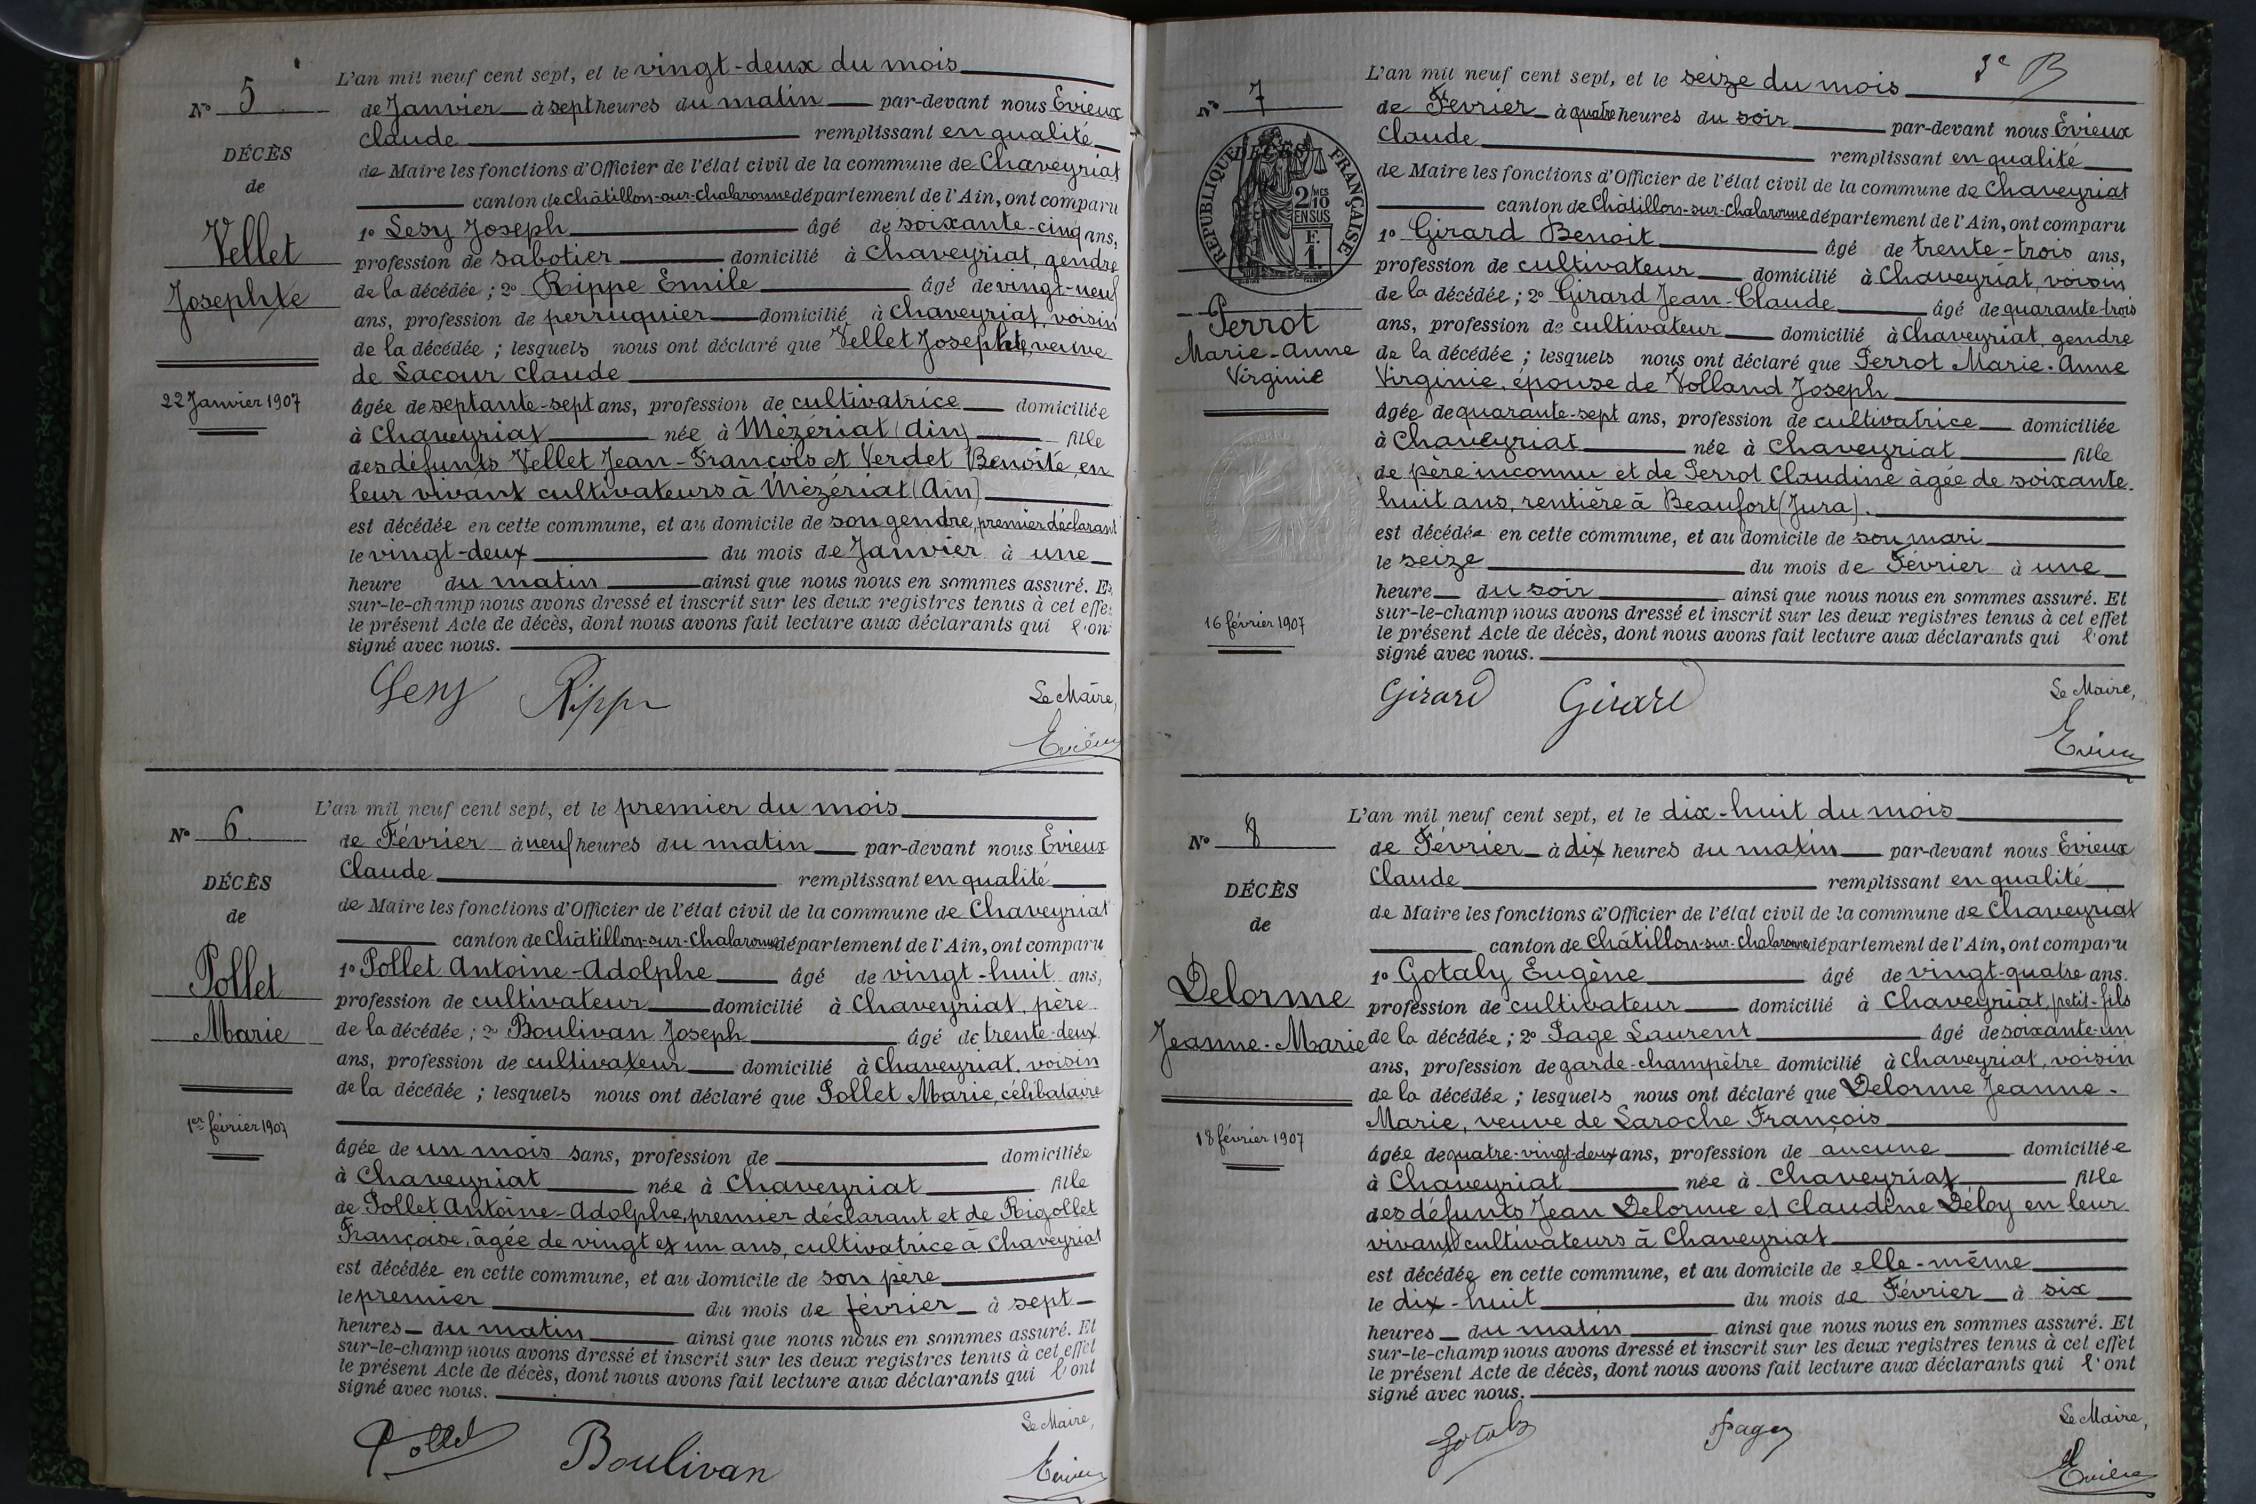 N° 5
DÉCÈS
de
Vellet
Josephte
22 Janvier 1907
L'an mil neuf cent sept, et le vingt-deux du mois
de Janvier à sept heures du matin par-devant nous Evieux
Claude remplissant en qualité
de Maire les fonctions d'Officier de l'état civil de la commune de Chaveyriat
canton de Châtillon-sur-Chalaronne département de l'Ain, ont comparu
1° Lesy Joseph âgé de soixante-cinq ans,
profession de sabotier domicilié à Chaveyriat, gendre
de la décédée ; 2° Rippe Emile âgé de vingt-neuf
ans, profession de perruquier domicilié à Chaveyriat, voisin
de la décédée ; lesquels nous ont déclaré que Vellet Josephte, veuve
de Lacour Claude
âgée de septante-sept ans, profession de cultivatrice domiciliée
à Chaveyriat née à Mézériat (Ain) fille
des défunts Vellet Jean-François et Verdet Benoite, en
leur vivant cultivateurs à Mézériat (Ain)
est décédée en cette commune, et au domicile de son gendre, premier déclarant
le vingt-deux du mois de Janvier à une
heure du matin ainsi que nous nous en sommes assuré. Et
sur-le-champ nous avons dressé et inscrit sur les deux registres tenus à cet effe
le présent Acte de décès, dont nous avons fait lecture aux déclarants qui l'on
signé avec nous.
Lesy Rippe Le Maire,
Evieux
N° 6
DÉCÈS
de
Pollet
Marie
1er février 1907
L'an mil neuf cent sept, et le premier du mois
de Février à neuf heures du matin par-devant nous Evieux
Claude remplissant en qualité
de Maire les fonctions d'Officier de l'état civil de la commune de Chaveyriat
canton de Châtillon-sur-Chalaronne département de l'Ain, ont comparu
1° Pollet Antoine-Adolphe âgé de vingt-huit ans,
profession de cultivateur domicilié à Chaveyriat, père
de la décédée ; 2° Boulivan Joseph âgé de trente-deux
ans, profession de cultivateur domicilié à Chaveyriat, voisin
de la décédée ; lesquels nous ont déclaré que Pollet Marie, célibataire
âgée de un mois sans, profession de domiciliée
à Chaveyriat née à Chaveyriat fille
de Pollet Antoine-Adolphe, premier déclarant et de Rigollet
Françoise, âgée de vingt et un ans, cultivatrice à Chaveyriat
est décédée en cette commune, et au domicile de son père
le premier du mois de février à sept
heures du matin ainsi que nous nous en sommes assuré. Et
sur-le-champ nous avons dressé et inscrit sur les deux registres tenus à cet effet
le présent Acte de décès, dont nous avons fait lecture aux déclarants qui l'ont
signé avec nous.
Pollet Boulivan Le Maire,
Evieux
3e B
N° 7
DÉCÈS
RÉPUBLIQUE FRANÇAISE
2/10 MES
EN SUS
F.
1.
Perrot
Marie-Anne
Virginie
16 février 1907
L'an mil neuf cent sept, et le seize du mois
de Février à quatre heures du soir par-devant nous Evieux
Claude remplissant en qualité
de Maire les fonctions d'Officier de l'état civil de la commune de Chaveyriat
canton de Chatillon-sur-Chalaronne département de l'Ain, ont comparu
1° Girard Benoit âgé de trente-trois ans,
profession de cultivateur domicilié à Chaveyriat, voisin
de la décédée ; 2° Girard Jean-Claude âgé de quarante-trois
ans, profession de cultivateur domicilié à Chaveyriat, gendre
de la décédée ; lesquels nous ont déclaré que Perrot Marie-Anne
Virginie, épouse de Volland Joseph
âgée de quarante-sept ans, profession de cultivatrice domiciliée
à Chaveyriat née à Chaveyriat fille
de père inconnu et de Perrot Claudine âgée de soixante-
huit ans, rentière à Beaufort (Jura).
est décédée en cette commune, et au domicile de son mari
le seize du mois de Février à une
heure du soir ainsi que nous nous en sommes assuré. Et
sur-le-champ nous avons dressé et inscrit sur les deux registres tenus à cet effet
le présent Acte de décès, dont nous avons fait lecture aux déclarants qui l'ont
signé avec nous.
Girard Girard Le Maire,
Evieux
N° 8
DÉCÈS
de
Delorme
Jeanne-Marie
18 février 1907
L'an mil neuf cent sept, et le dix-huit du mois
de Février à dix heures du matin par-devant nous Evieux
Claude remplissant en qualité
de Maire les fonctions d'Officier de l'état civil de la commune de Chaveyriat
canton de Châtillon-sur-Chalaronne département de l'Ain, ont comparu
1° Gotaly Eugène âgé de vingt-quatre ans.
profession de cultivateur domicilié à Chaveyriat, petit-fils
de la décédée ; 2° Page Laurent âgé de soixante-un
ans, profession de garde-champêtre domicilié à Chaveyriat, voisin
de la décédée ; lesquels nous ont déclaré que Delorme Jeanne-
Marie, veuve de Laroche François
âgée de quatre-vingt-deux ans, profession de aucune domiciliée
à Chaveyriat née à Chaveyriat fille
des défunts Jean Delorme et Claudine Déloy en leur
vivant cultivateurs à Chaveyriat
est décédée en cette commune, et au domicile de elle-même
le dix-huit du mois de Février à six
heures du matin ainsi que nous nous en sommes assuré. Et
sur-le-champ nous avons dressé et inscrit sur les deux registres tenus à cet effet
le présent Acte de décès, dont nous avons fait lecture aux déclarants qui l'ont
signé avec nous.
Gotaly Page Le Maire,
Evieux